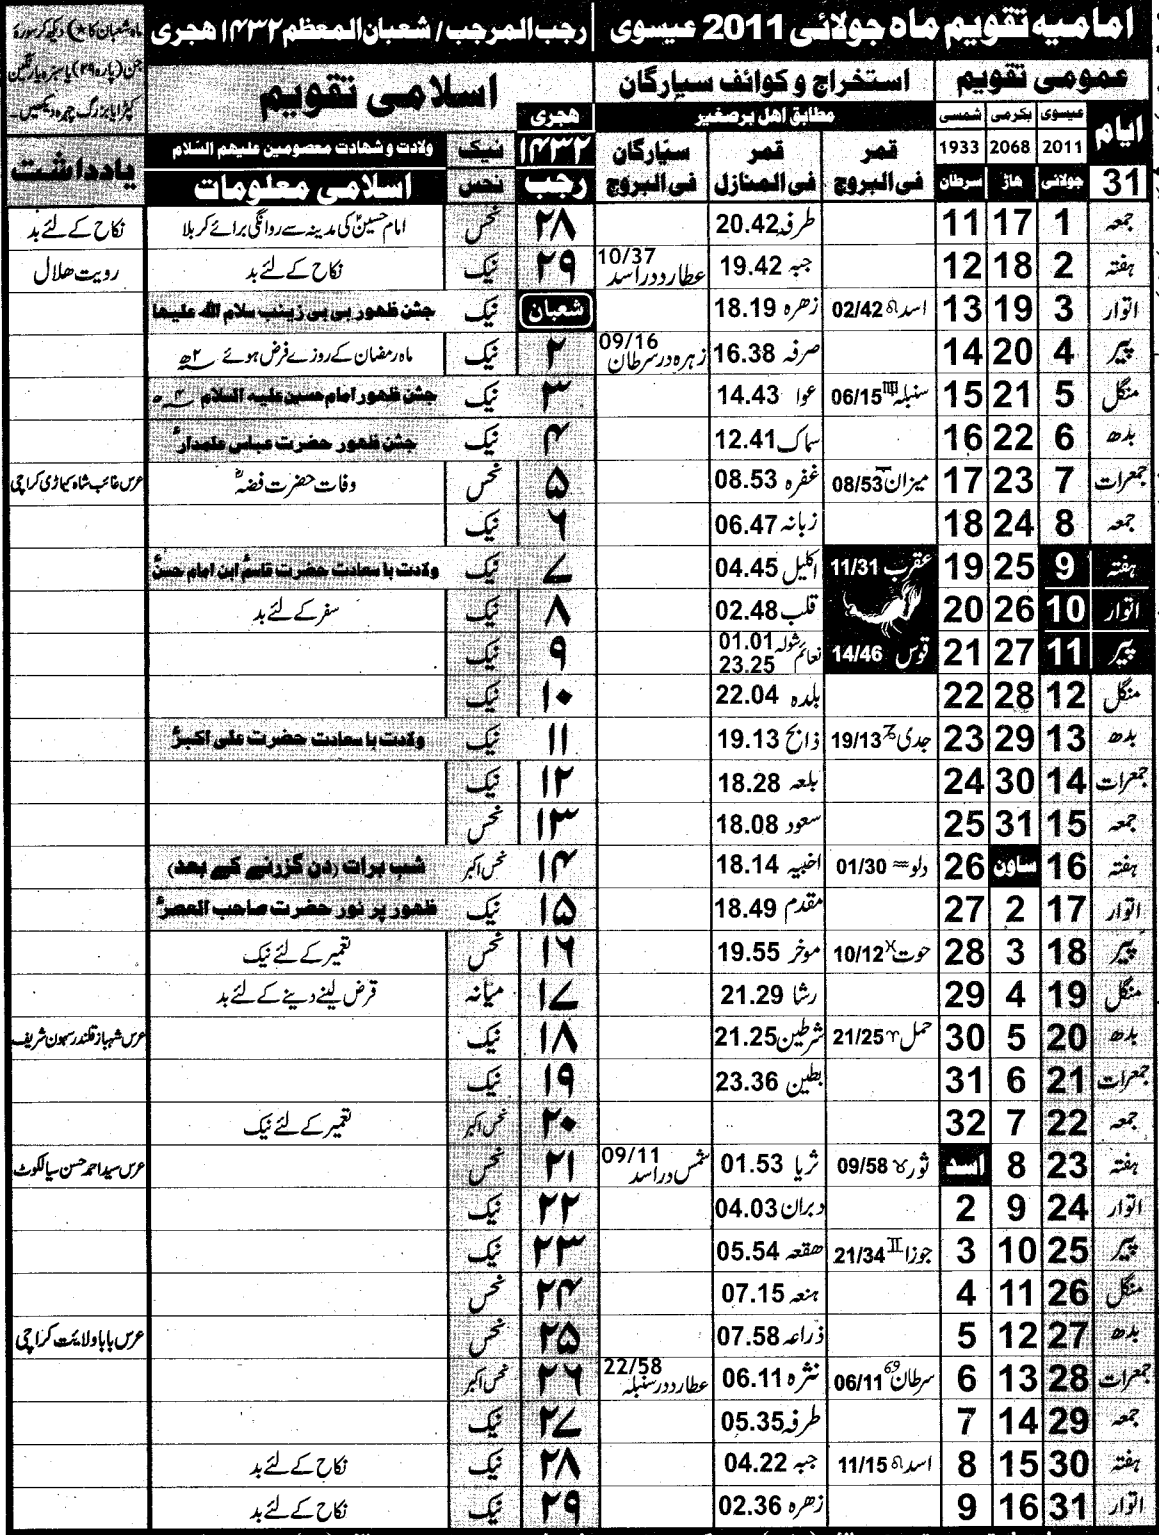 امامیہ تقویم ماہ جولائی 2011 عیسوی رجب المرجب / شعبان المعظم ۱۴۳۲ ہجری
عمومی تقویم استخراج و کوائف سیارگان اسلامی تقویم
مطابق اہل برصغیر
ایام عیسوی بکرمی شمسی قمر قمر سیّارگان ہجری نیک ولادت و شہادت معصومین علیہم السّلام یادداشت
2011 2068 1933 فی البروج فی المنازل فی البروج ۱۴۳۲ نحس اسلامی معلومات
31 جولائی ہاڑ سرطان رجب
جمعہ 1 17 11 طرفہ 20.42 ۲۸ نحس امام حسینؑ کی مدینہ سے روانگی برائے کربلا نکاح کے لئے بد
ہفتہ 2 18 12 جبہ 19.42 10/37 عطارد در اسد ۲۹ نیک نکاح کے لئے بد رویت ھلال
اتوار 3 19 13 اسد ♌ 02/42 زھرہ 18.19 شعبان نیک جشن ظہور بی بی زینب سلام اللہ علیہا
پیر 4 20 14 صرفہ 16.38 09/16 زہرہ در سرطان ۲ نیک ماہ رمضان کے روزے فرض ہوئے ۲ھ
منگل 5 21 15 سنبلہ ♍ 06/15 عوا 14.43 ۳ نیک جشن ظہور امام حسین علیہ السلام ۴ھ
بدھ 6 22 16 سماک 12.41 ۴ نیک جشن ظہور حضرت عباس علمدارؑ
جمعرات 7 23 17 میزان 08/53 غفرہ 08.53 ۵ نحس وفات حضرت فضہؓ عرس غائب شاہ کیماڑی کراچی
جمعہ 8 24 18 زبانہ 06.47 ۶ نیک
ہفتہ 9 25 19 عقرب 11/31 اکلیل 04.45 ۷ نیک ولادت با سعادت حضرت قاسمؑ ابن امام حسنؑ
اتوار 10 26 20 قلب 02.48 ۸ نیک سفر کے لئے بد
پیر 11 27 21 قوس 14/46 شولہ 01.01 نعائم 23.25 ۹ نیک
منگل 12 28 22 بلدہ 22.04 ۱۰ نیک
بدھ 13 29 23 جدی ♑ 19/13 ذابح 19.13 ۱۱ نیک ولادت با سعادت حضرت علی اکبرؑ
جمعرات 14 30 24 بلعہ 18.28 ۱۲ نیک
جمعہ 15 31 25 سعود 18.08 ۱۳ نحس
ہفتہ 16 ساون 26 دلو ♒ 01/30 اخبیہ 18.14 ۱۴ نحس اکبر شب برات (دن گزرنے کے بعد)
اتوار 17 2 27 مقدم 18.49 ۱۵ نیک ظہور پر نور حضرت صاحب العصرؑ
پیر 18 3 28 حوت ♓ 10/12 موخر 19.55 ۱۶ نحس تعمیر کے لئے نیک
منگل 19 4 29 رشا 21.29 ۱۷ میانہ قرض لینے دینے کے لئے بد
بدھ 20 5 30 حمل ♈ 21/25 شرطین 21.25 ۱۸ نیک عرس شہباز قلندر سہون شریف
جمعرات 21 6 31 بطین 23.36 ۱۹ نیک
جمعہ 22 7 32 ۲۰ نحس اکبر تعمیر کے لئے نیک
ہفتہ 23 8 اسد ثور ♉ 09/58 ثریا 01.53 09/11 شمس در اسد ۲۱ نحس عرس سید احمد حسن سیالکوٹ
اتوار 24 9 2 دبران 04.03 ۲۲ نیک
پیر 25 10 3 جوزا ♊ 21/34 ھقعہ 05.54 ۲۳ نیک
منگل 26 11 4 ہنعہ 07.15 ۲۴ نحس
بدھ 27 12 5 ذراعہ 07.58 ۲۵ نحس عرس بابا ولایت کراچی
جمعرات 28 13 6 سرطان ♋ 06/11 نثرہ 06.11 22/58 عطارد در سنبلہ ۲۶ نحس اکبر
جمعہ 29 14 7 طرفہ 05.35 ۲۷ نیک
ہفتہ 30 15 8 اسد ♌ 11/15 جبہ 04.22 ۲۸ نیک نکاح کے لئے بد
اتوار 31 16 9 زھرہ 02.36 ۲۹ نیک نکاح کے لئے بد
ماہ شعبان کا دیکھ کر سورۂ
جن (پارہ ۲۹) یا سبزہ یا رنگین
کپڑا یا بزرگ چہرہ دیکھیں۔